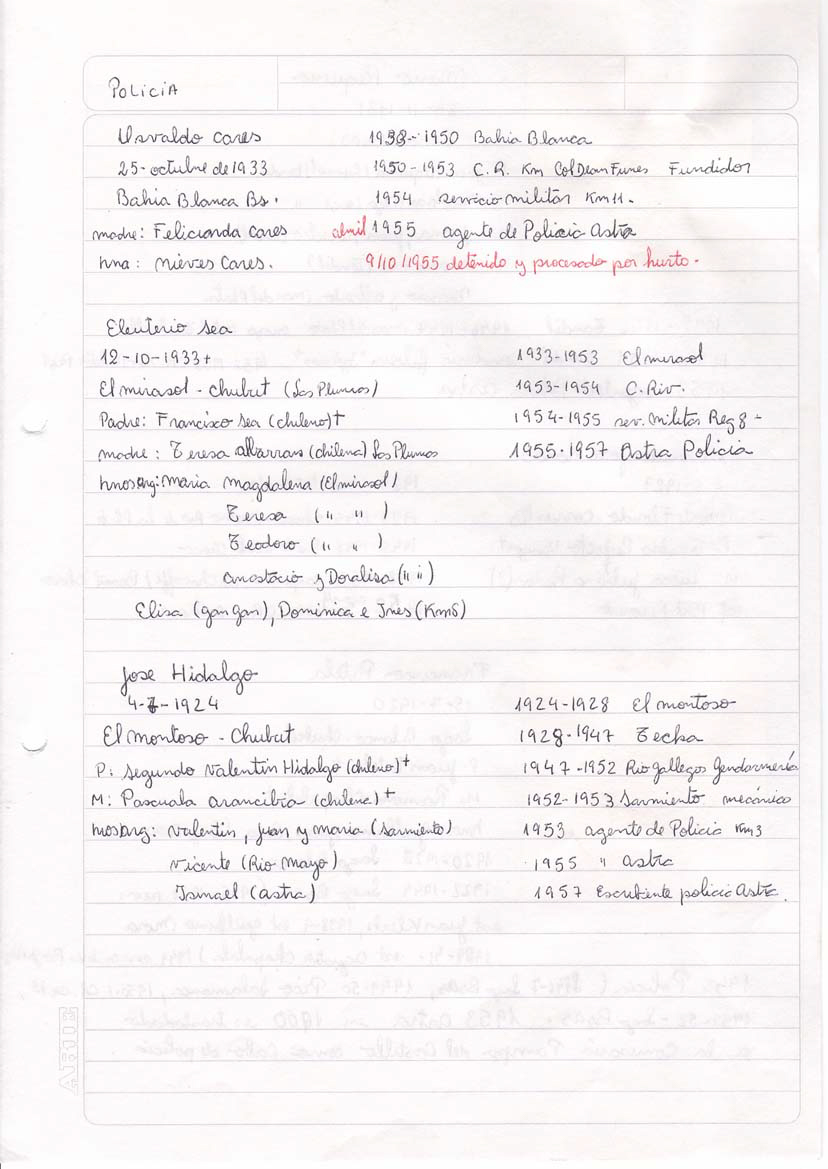 Policia
Osvaldo Cares 1938-1950 Bahia Blanca
25-octubre de 1933 1950-1953 C.R. Km Col Dean Funes Fundidor
Bahia Blanca Bs. 1954 servicio militar Km 11.
madre: Felicianda Cares abril 1955 agente de Policia Astra
hna: nieves Cares. 9/10/1955 detenido y procesado por hurto.
Eleuterio Sea
12-10-1933+ 1933-1953 El mirasol
El mirasol - Chubut (Las Plumas) 1953-1954 C. Riv.
Padre: Francisco Sea (chileno)+ 1954-1955 ser. militar Reg 8 -
madre: Teresa albarran (chilena) Las Plumas 1955-1957 Astra Policia
hnos arg: Maria Magdalena (El mirasol)
Teresa (" ")
Teodoro (" ")
anastacio y Doralisa (" ")
Elisa (gan gan), Dominica e Ines (Km5)
Jose Hidalgo
4-7-1924 1924-1928 El montoso
El montoso - Chubut 1928-1947 Tecka
P: Segundo Valentin Hidalgo (chileno)+ 1947-1952 Rio Gallegos Gendarmería
M: Pascuala arancibia (chilena)+ 1952-1953 Sarmiento mecánico
hnos arg: Valentin, Juan y maria (Sarmiento) 1953 agente de Policia Km3
Vicente (Rio Mayo) 1955 " astra
Ismael (astra) 1957 Escribiente policia Astra.
ARTE